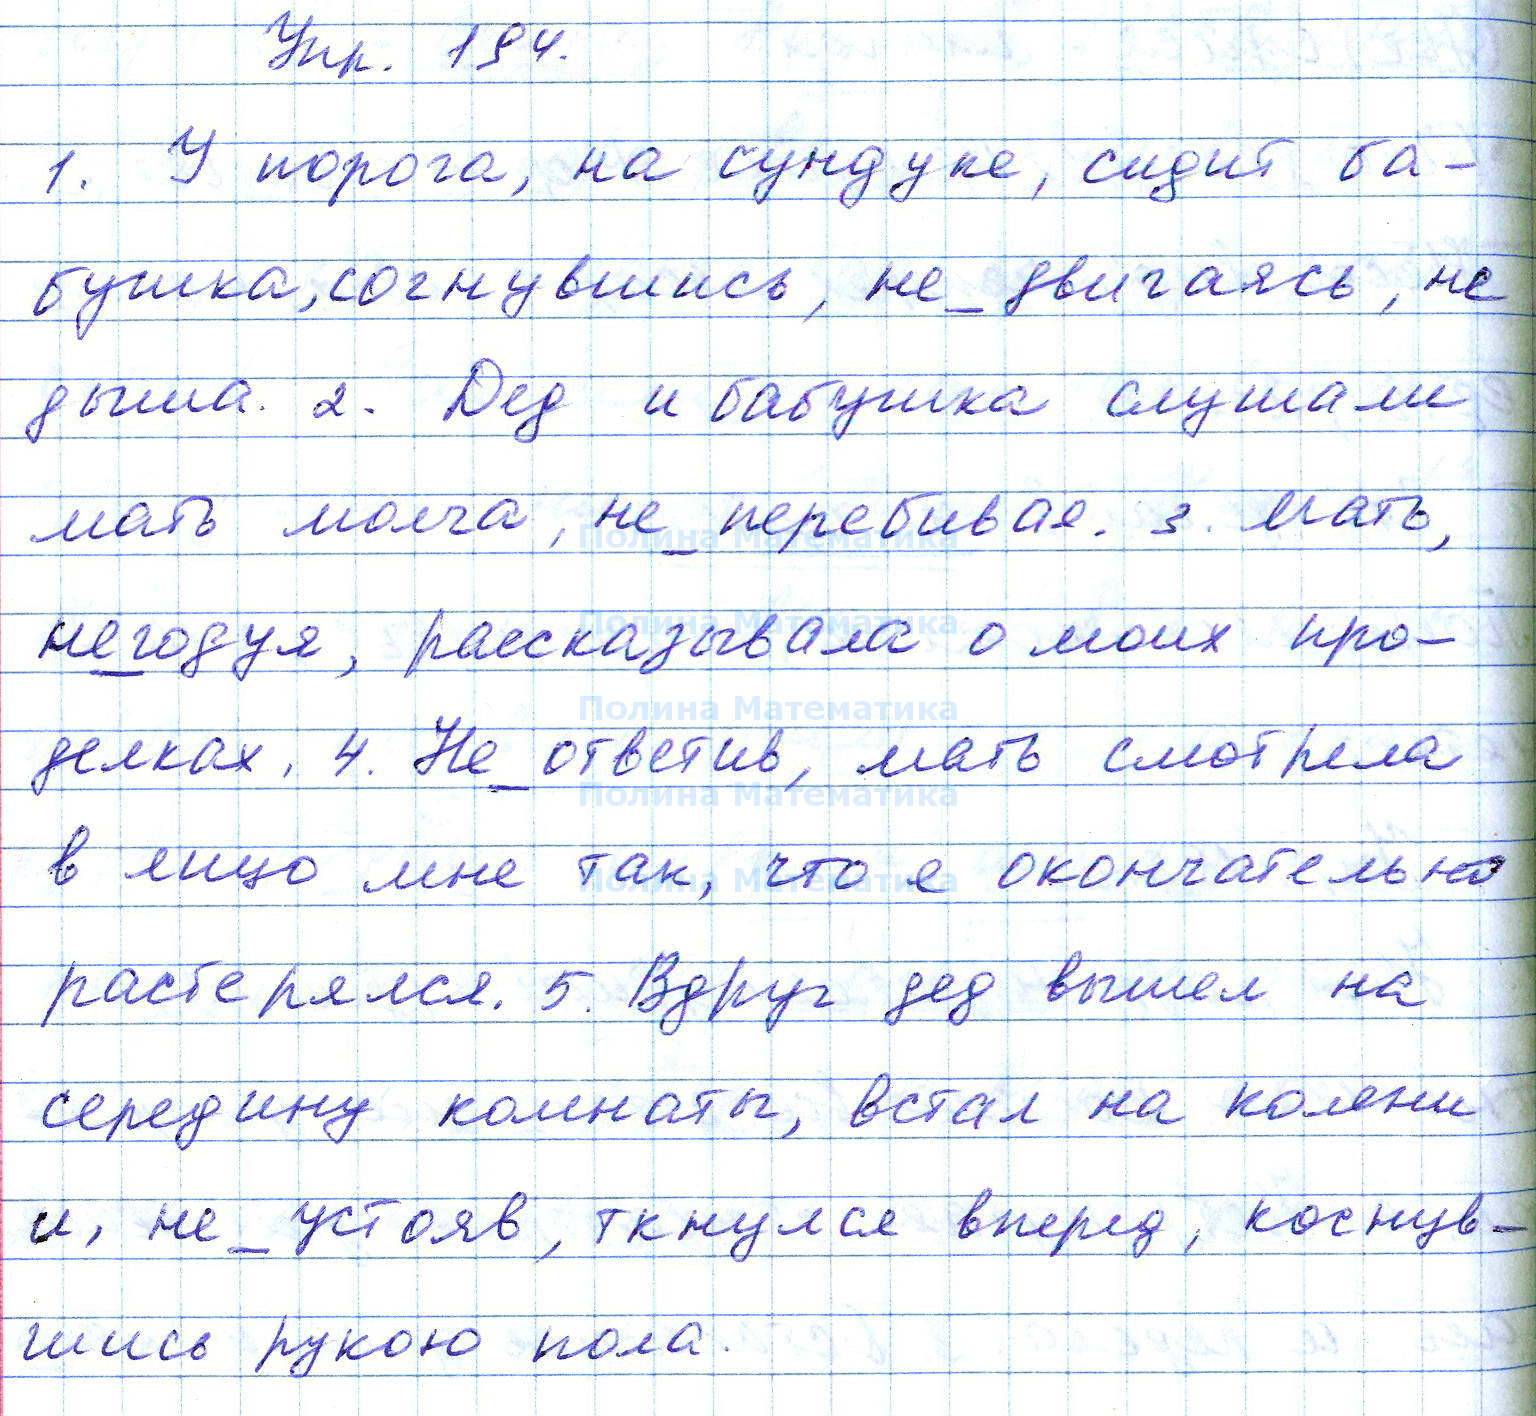 Упр. 194.
1. У порога, на сундуке, сидит ба-
бушка, согнувшись, не_двигаясь, не
дыша. 2. Дед и бабушка слушали
мать молча, не_перебивая. 3. Мать,
Полина Математика
негодуя, рассказывала о моих про-
Полина Математика
Полина Математика
делках. 4. Не_ответив, мать смотрела
Полина Математика
в лицо мне так, что я окончательно
Полина Математика
растерялся. 5. Вдруг дед вышел на
середину комнаты, встал на колени
и, не_устояв, ткнулся вперед, коснув-
шись рукою пола.